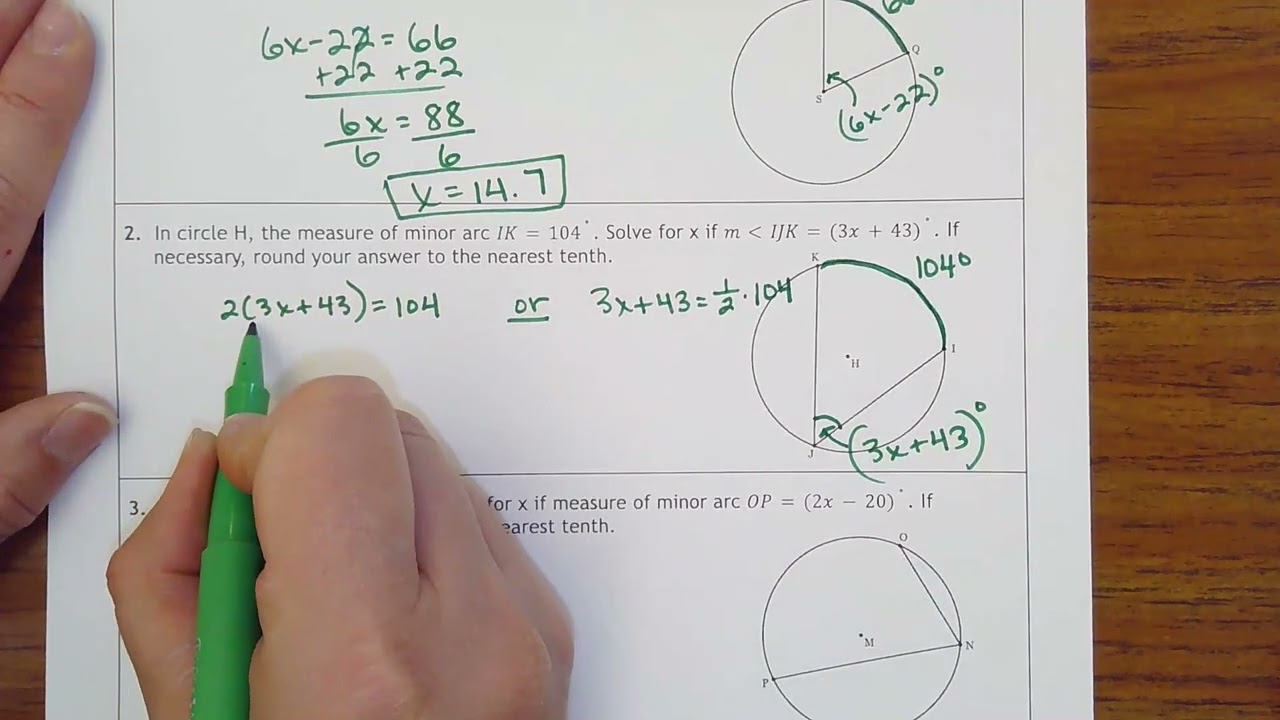 6x-22=66
+22 +22
6x = 88
6 6
x=14.7
Q
S
(6x-22)°
2. In circle H, the measure of minor arc IK = 104°. Solve for x if m < IJK = (3x + 43)°. If
necessary, round your answer to the nearest tenth.
2(3x+43)=104 or 3x+43=1/2·104
K
104°
I
H
J
(3x+43)°
3.
for x if measure of minor arc OP = (2x − 20)°. If
earest tenth.
O
M
N
P